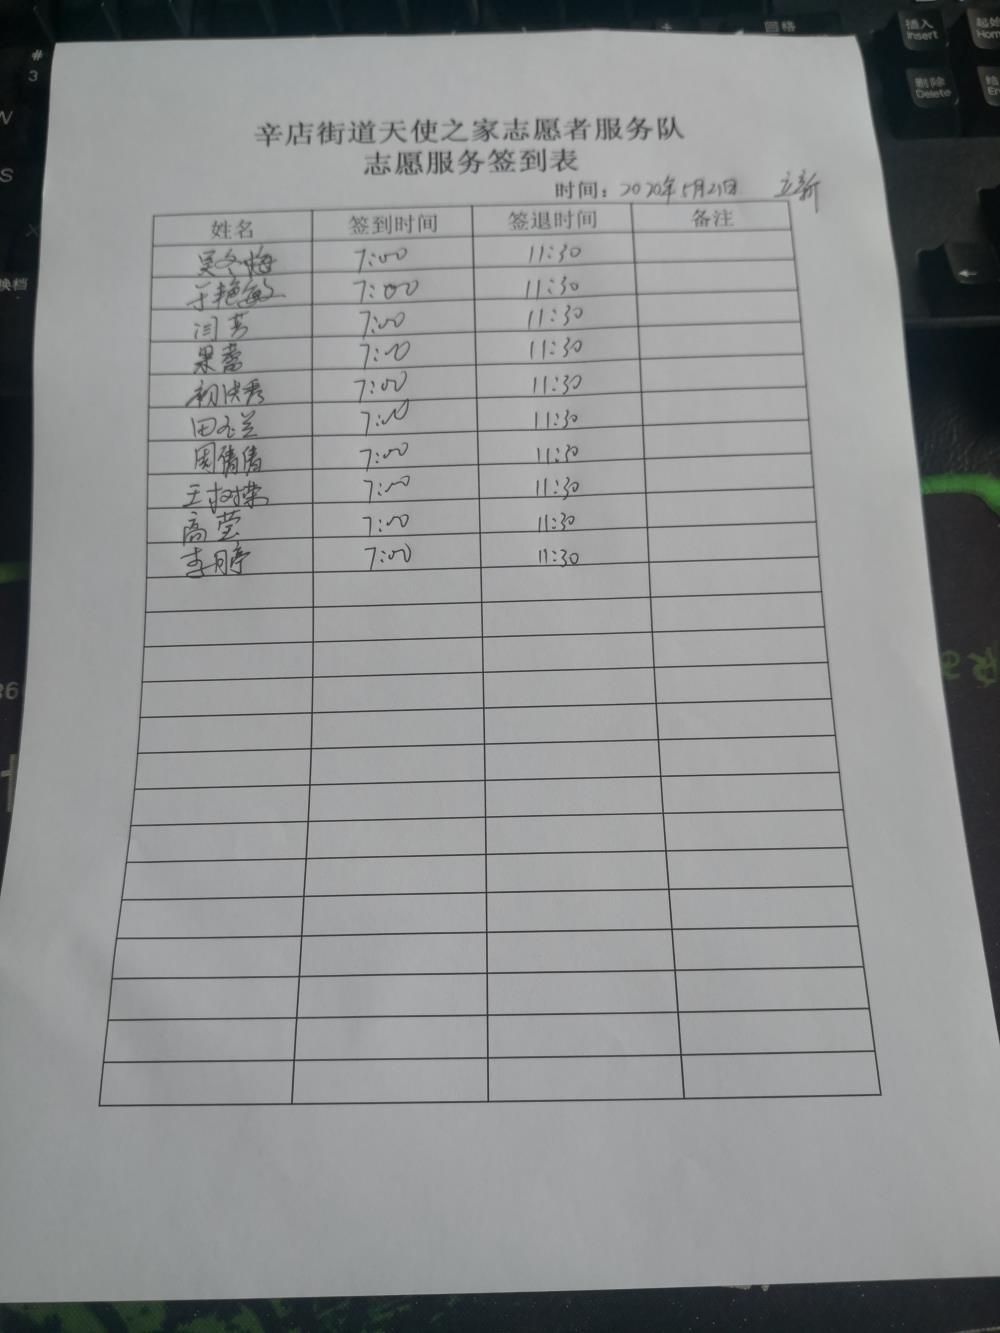 辛店街道天使之家志愿者服务队
志愿服务签到表
时间：2020年5月21日 立新
姓名 签到时间 签退时间 备注
吴冬梅 7:00 11:30
于艳敏 7:00 11:30
闫芳 7:00 11:30
果蕾 7:00 11:30
7:00 11:30
田玉兰 7:00 11:30
周倩倩 7:00 11:30
王树荣 7:00 11:30
高莹 7:00 11:30
李月亭 7:00 11:30
插入
Insert
删除
Delete
回格
换档
#
3
W
S
X